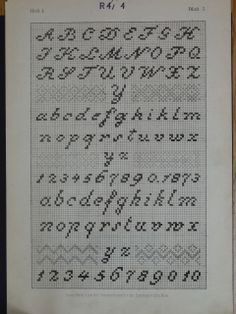 R4, 4
ABCDEFGH
IJKLMNOPQ
RSTUVWXZ
Y
abcdefghiklm
nopqrstuvwx
yz
1234567890.1873
abcdefghiklm
nopqrstuvwx
yz
12345678910